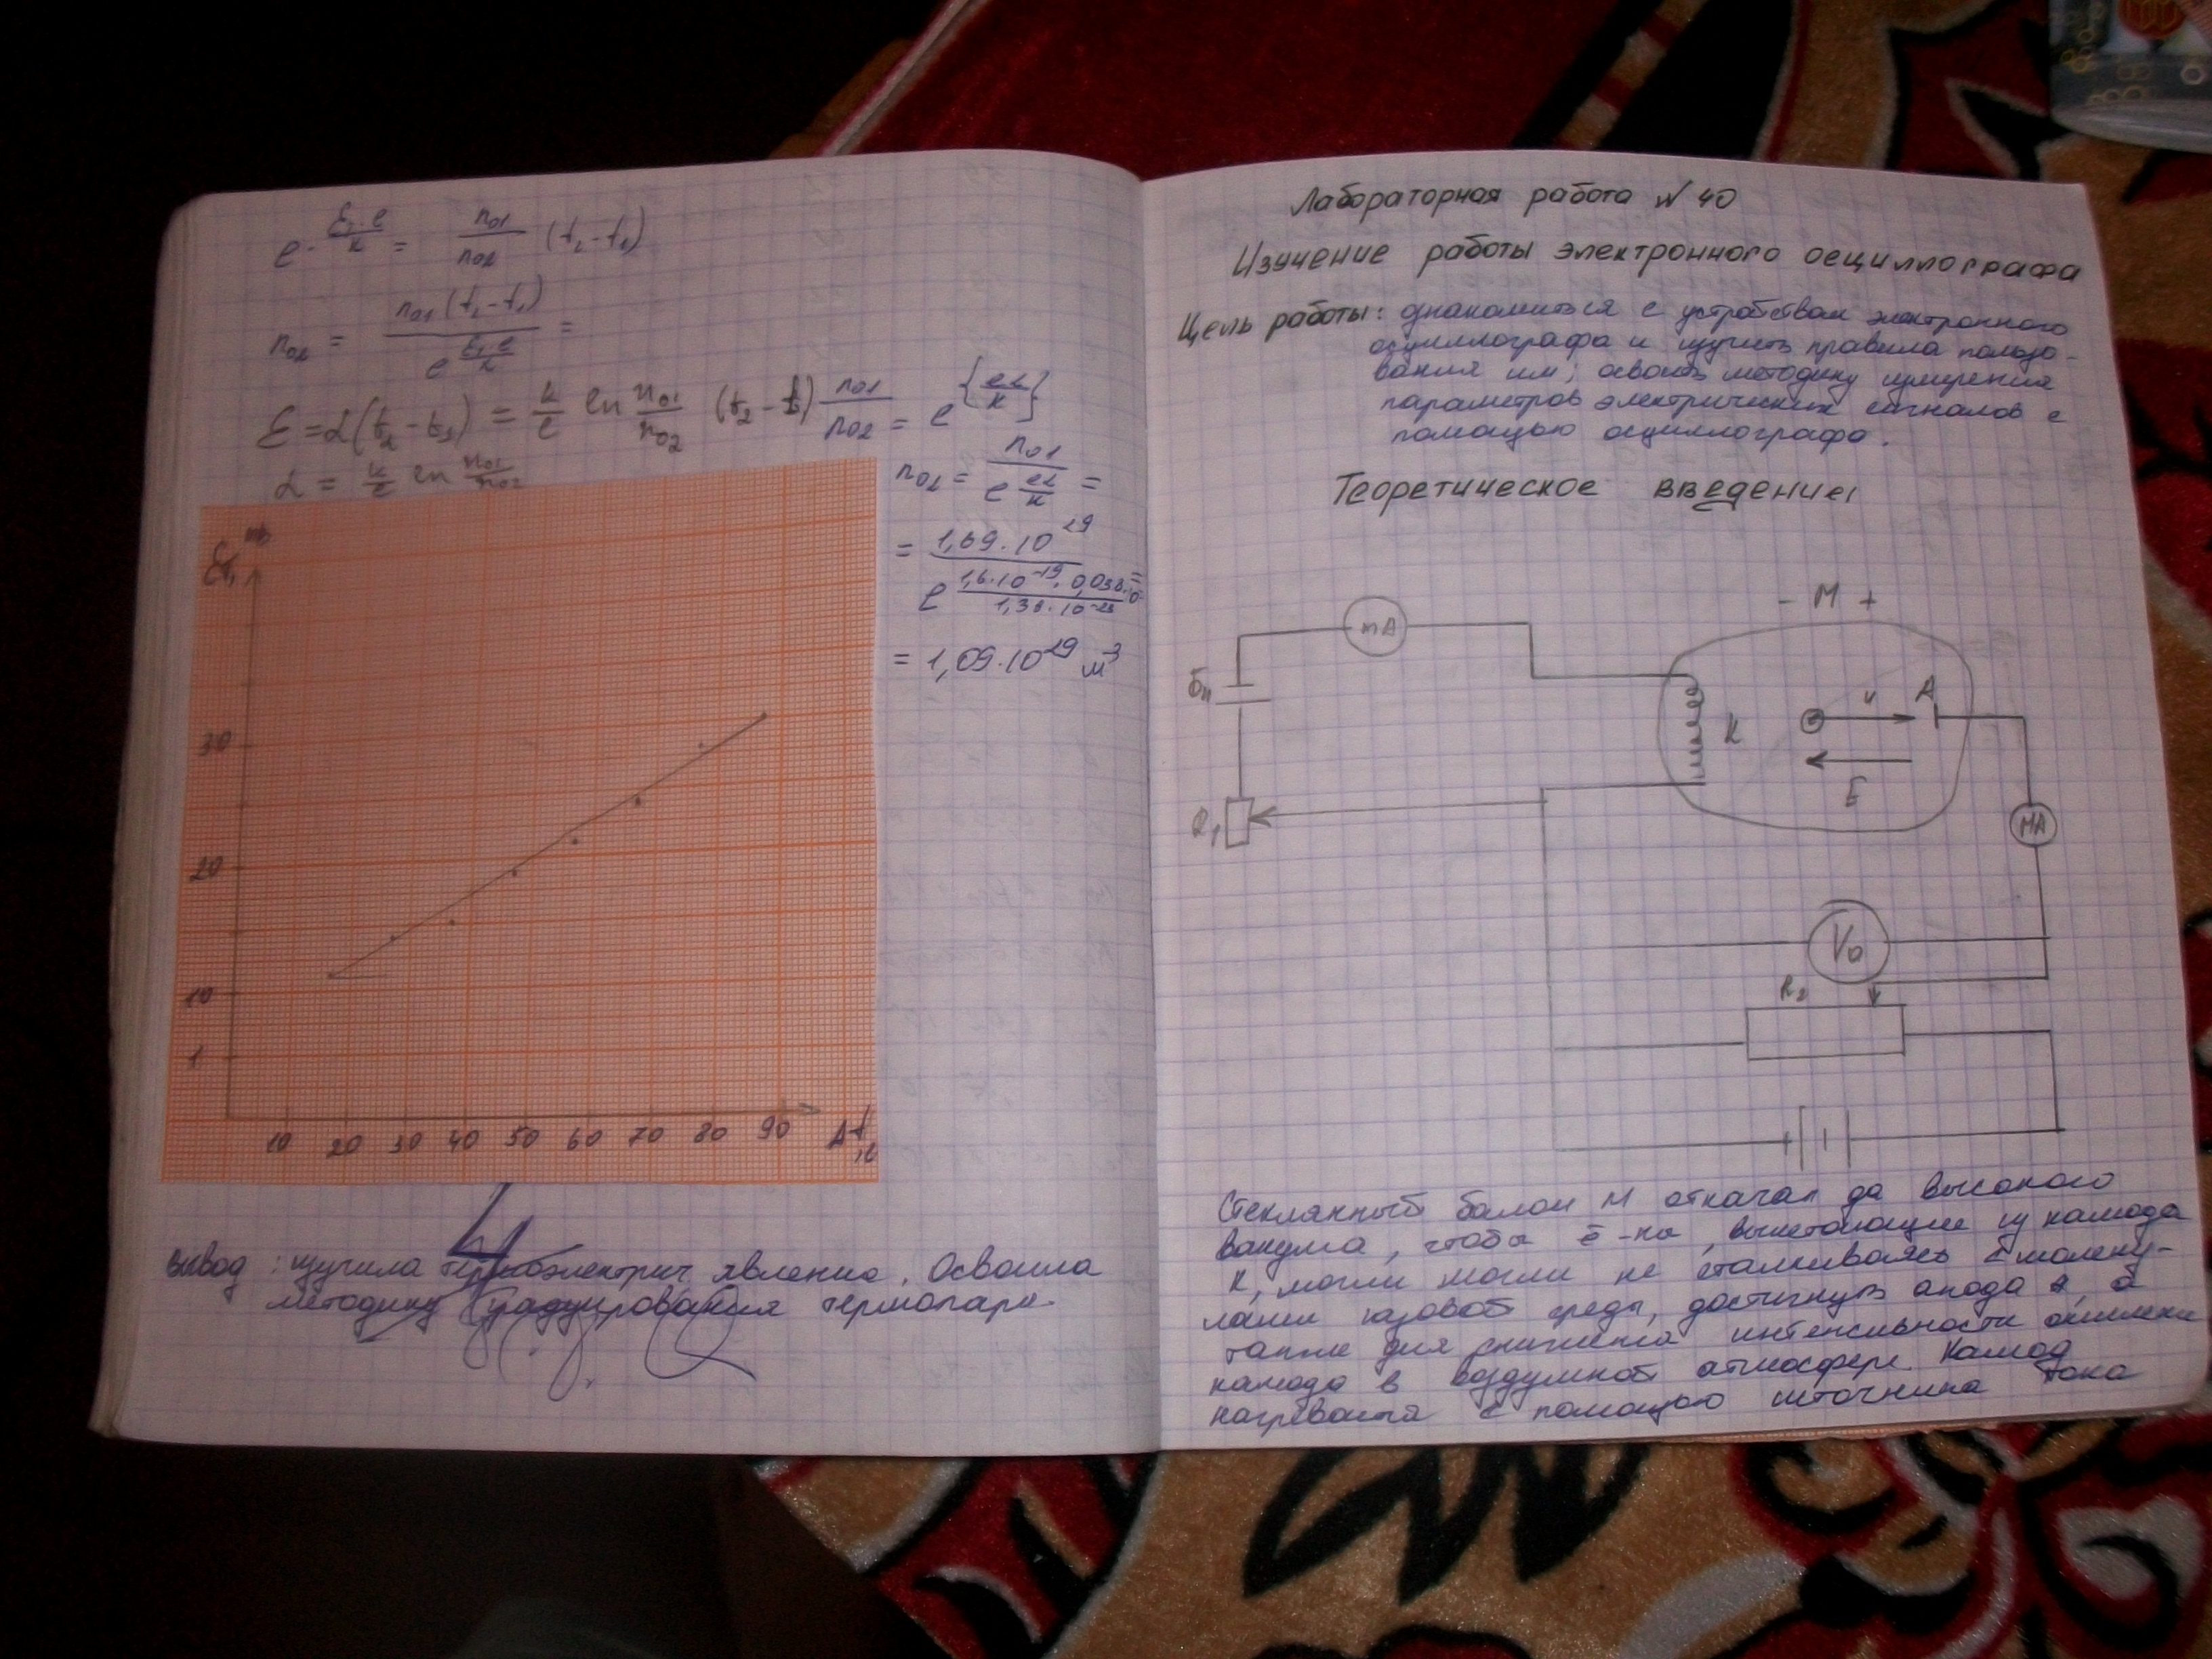 e - ε₁·e/k = n₀₁/n₀₂ (t₂-t₁)
n₀₂ = n₀₁(t₂-t₁) / e^(ε₁·e/k) =
ε = α(t₂-t₁) = k/e ln n₀₁/n₀₂ (t₂-t₁)
α = k/e ln n₀₁/n₀₂
n₀₁/n₀₂ = e^{eα/k}
n₀₂ = n₀₁ / e^(eα/k) =
= 1,69·10²⁹
1,6·10⁻¹⁹·0,038
1,38·10⁻²³
= 1,09·10²⁹ м⁻³
30
20
10
1
10 20 30 40 50 60 70 80 90 Δt
4
Вывод: изучила термоэлектрич явление. Освоила
методику градуирования термопары.
Лабораторная работа № 40
Изучение работы электронного осциллографа
Цель работы: ознакомиться с устройством электронного
осциллографа и изучить правила пользо-
вания им; освоить методику измерения
параметров электрических сигналов с
помощью осциллографа.
Теоретическое введение
- M +
mA
Бн
R₁
K
v
A
E
MA
V₀
R₂
Стеклянный балон М откачан да высокого
вакуума, чтобы ē-ны, вылетающие из катода
К, могли могли не сталкиваясь с молеку-
лами газовой среды, достигнуть анода А, а
также для снижения интенсивности окисления
катода в воздушной атмосфере. Катод
нагревается с помощью источника тока